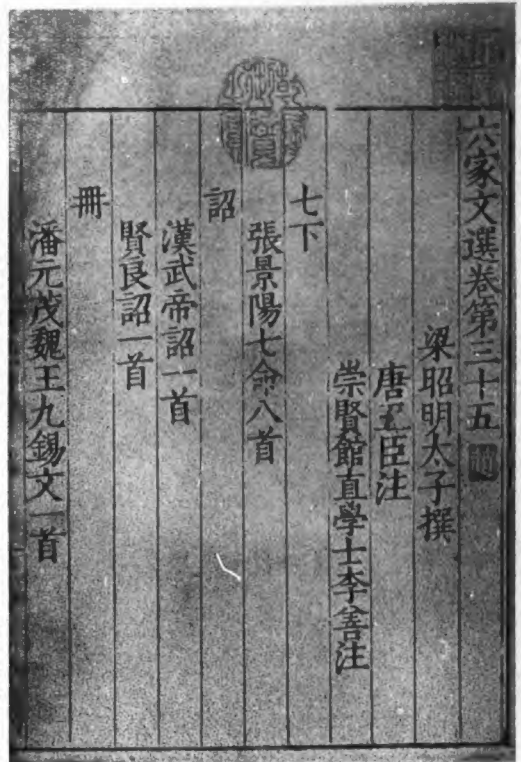 六家文選卷第三十五
梁昭明太子撰
唐五臣注
崇賢館直學士李善注
七下
張景陽七命八首
詔
漢武帝詔一首
賢良詔一首
冊
潘元茂魏王九錫文一首